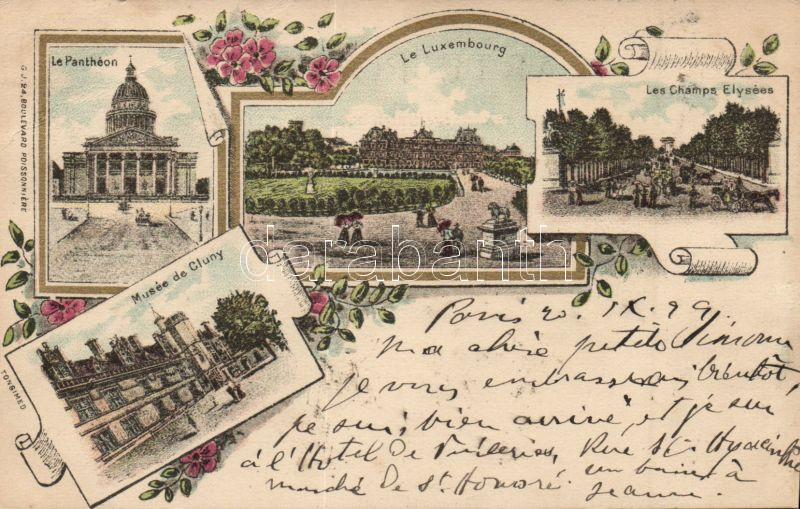 Le Panthéon
Le Luxembourg
Les Champs Elysées
G. J. 24, BOULEVARD POISSONNIÈRE
Musée de Cluny
darabanth
Paris 20. IX. 99
Ma chère petite
je vous embrasserai bientôt,
je suis bien arrivé, et je suis
à l'Hotel De Tuileries, Rue St Hyacinthe
marché De St Honoré. un baiser à
Jeanne.